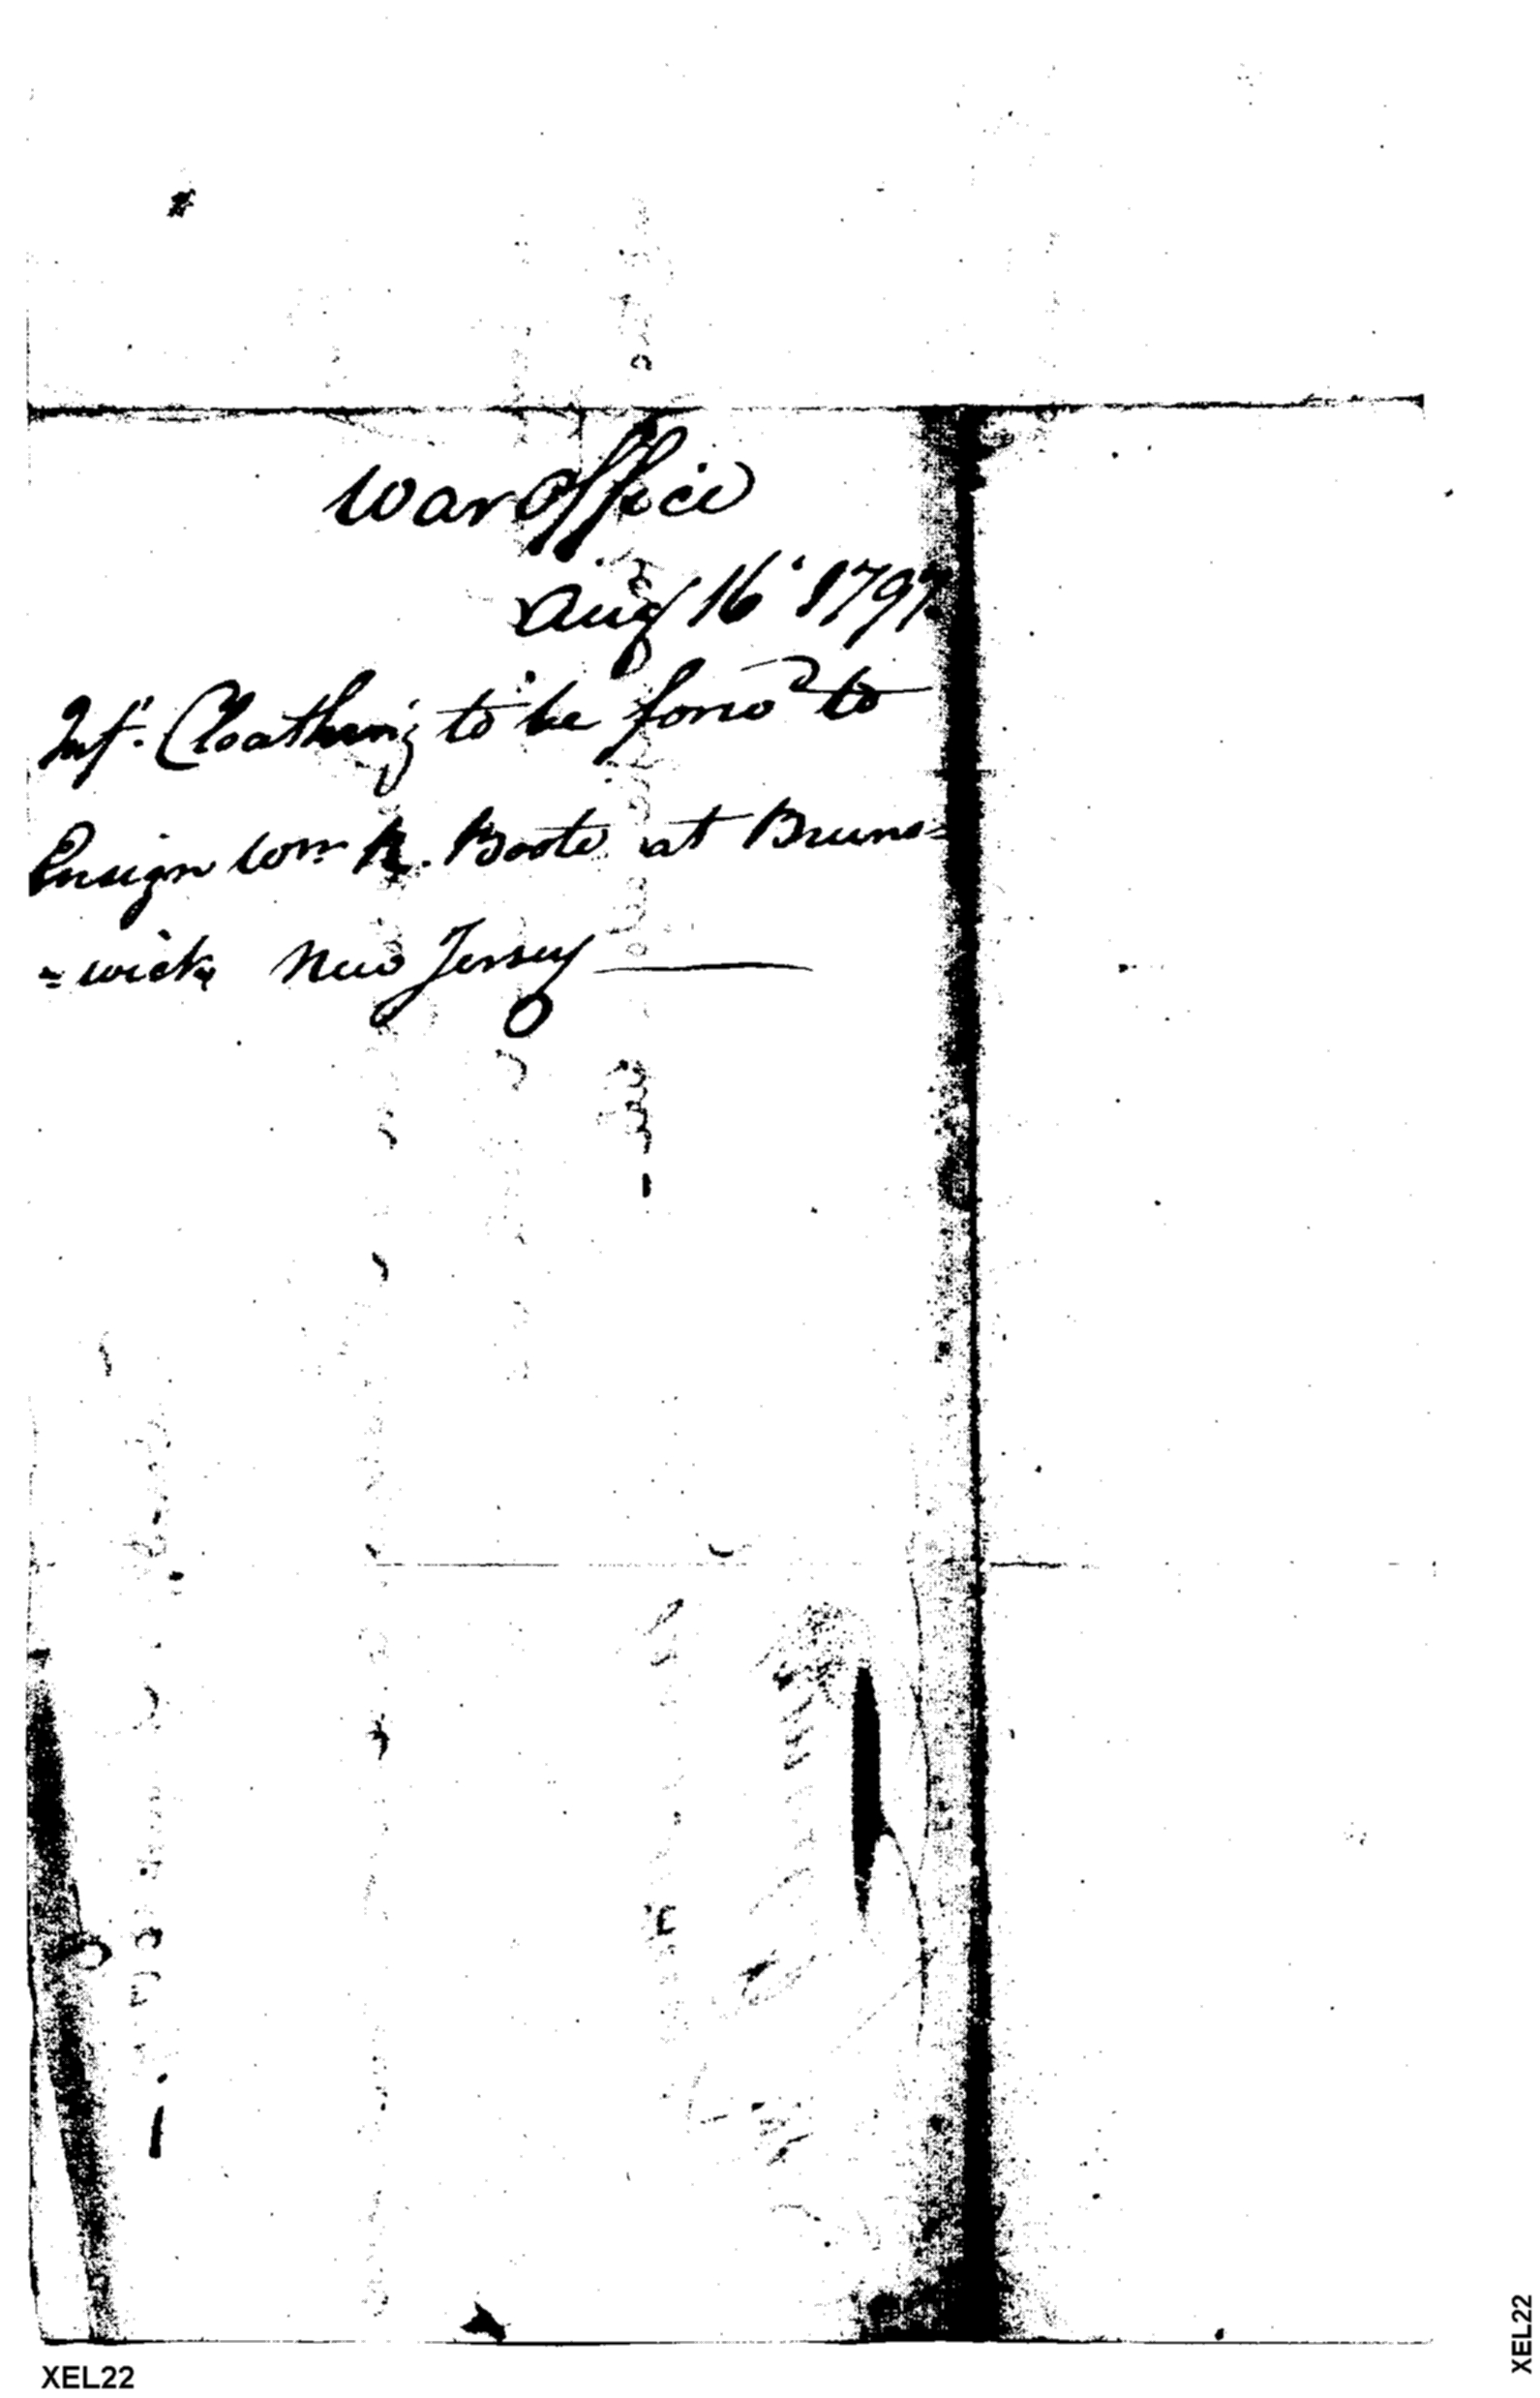 War Office
Aug 16 1797
Inf. Cloathing to be forwd to
Ensign Wm R. Boote at Bruns=
=wick New Jersey
XEL22
XEL22